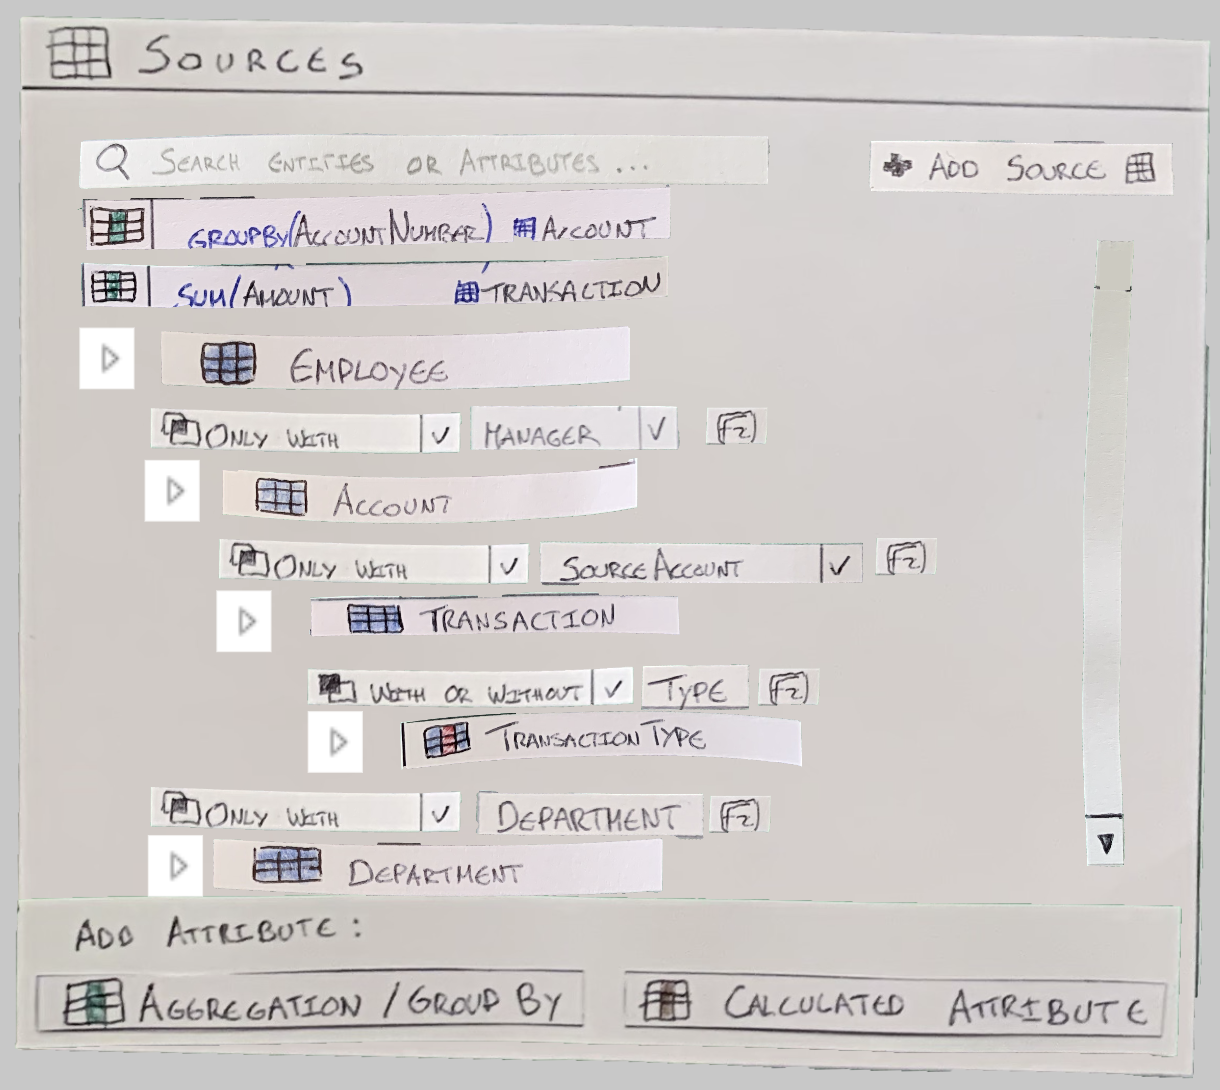 SOURCES
SEARCH ENTITIES OR ATTRIBUTES ...
ADD SOURCE
GROUPBY(ACCOUNTNUMBER) ACCOUNT
SUM(AMOUNT) TRANSACTION
EMPLOYEE
ONLY WITH MANAGER
ACCOUNT
ONLY WITH SOURCEACCOUNT
TRANSACTION
WITH OR WITHOUT TYPE
TRANSACTIONTYPE
ONLY WITH DEPARTMENT
DEPARTMENT
ADD ATTRIBUTE:
AGGREGATION / GROUP BY
CALCULATED ATTRIBUTE